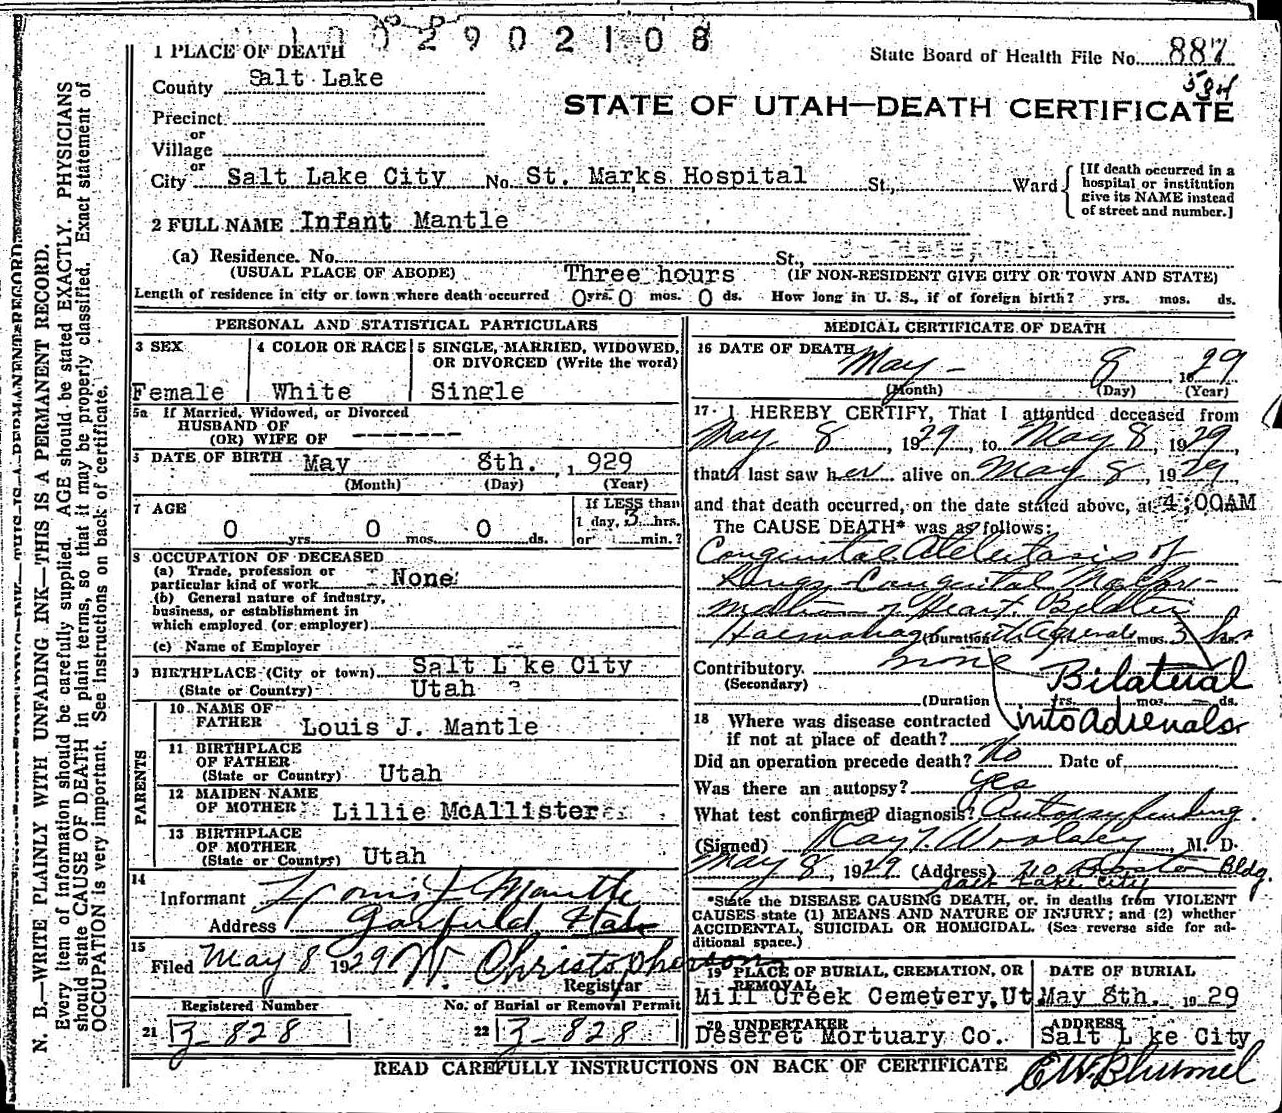 1002902108
1 PLACE OF DEATH
State Board of Health File No. 887
County Salt Lake
STATE OF UTAH—DEATH CERTIFICATE
Precinct
or
Village
or
City Salt Lake City No. St. Marks Hospital St., Ward
[If death occurred in a hospital or institution give its NAME instead of street and number.]
2 FULL NAME Infant Mantle
(a) Residence. No. St.,
(USUAL PLACE OF ABODE) Three hours (IF NON-RESIDENT GIVE CITY OR TOWN AND STATE)
Length of residence in city or town where death occurred 0 yrs. 0 mos. 0 ds. How long in U. S., if of foreign birth? yrs. mos. ds.
PERSONAL AND STATISTICAL PARTICULARS
3 SEX 4 COLOR OR RACE 5 SINGLE, MARRIED, WIDOWED, OR DIVORCED (Write the word)
Female White Single
5a If Married, Widowed, or Divorced
HUSBAND OF
(OR) WIFE OF --------
DATE OF BIRTH May 8th. 1929
(Month) (Day) (Year)
7 AGE If LESS than
0 yrs. 0 mos. 0 ds. 1 day, 3 hrs.
or min.?
8 OCCUPATION OF DECEASED
(a) Trade, profession or
particular kind of work None
(b) General nature of industry,
business, or establishment in
which employed (or employer)
(c) Name of Employer
9 BIRTHPLACE (City or town) Salt L ke City
(State or Country) Utah
PARENTS
10 NAME OF
FATHER Louis J. Mantle
11 BIRTHPLACE
OF FATHER
(State or Country) Utah
12 MAIDEN NAME
OF MOTHER Lillie McAllister
13 BIRTHPLACE
OF MOTHER
(State or Country) Utah
14
Informant Louis J. Mantle
Address Garfield Utah
15
Filed May 8 1929 W. Christopherson
Registrar
Registered Number No. of Burial or Removal Permit
21 3-828 22 3-828
MEDICAL CERTIFICATE OF DEATH
16 DATE OF DEATH
May - 8 1929
(Month) (Day) (Year)
17 I HEREBY CERTIFY, That I attended deceased from
May 8, 1929, to May 8, 1929,
that I last saw her alive on May 8, 1929
and that death occurred, on the date stated above, at 4:00AM
The CAUSE DEATH* was as follows:
Congenital Atelectasis of
Lungs - Congenital Malfor-
mation of Heart. Bilater
Haemorrhage (Duration mos. 3 hrs ds.
Contributory none
(Secondary) Bilateral
(Duration yrs. mos. ds.
into Adrenals
18 Where was disease contracted
if not at place of death?
Did an operation precede death? No Date of
Was there an autopsy? yes
What test confirmed diagnosis? Autopsy finding.
(Signed) Ray T. Woolsey, M. D.
May 8, 1929 (Address) 710 Boston Bldg.
Salt Lake City
*State the DISEASE CAUSING DEATH, or, in deaths from VIOLENT
CAUSES state (1) MEANS AND NATURE OF INJURY; and (2) whether
ACCIDENTAL, SUICIDAL OR HOMICIDAL. (See reverse side for ad-
ditional space.)
19 PLACE OF BURIAL, CREMATION, OR REMOVAL DATE OF BURIAL
Mill Creek Cemetery, Ut May 8th. 1929
20 UNDERTAKER ADDRESS
Deseret Mortuary Co. Salt L ke City
READ CAREFULLY INSTRUCTIONS ON BACK OF CERTIFICATE
N. B.—WRITE PLAINLY WITH UNFADING INK—THIS IS A PERMANENT RECORD.
Every item of information should be carefully supplied. AGE should be stated EXACTLY. PHYSICIANS
should state CAUSE OF DEATH in plain terms, so that it may be properly classified. Exact statement of
OCCUPATION is very important. See instructions on back of certificate.